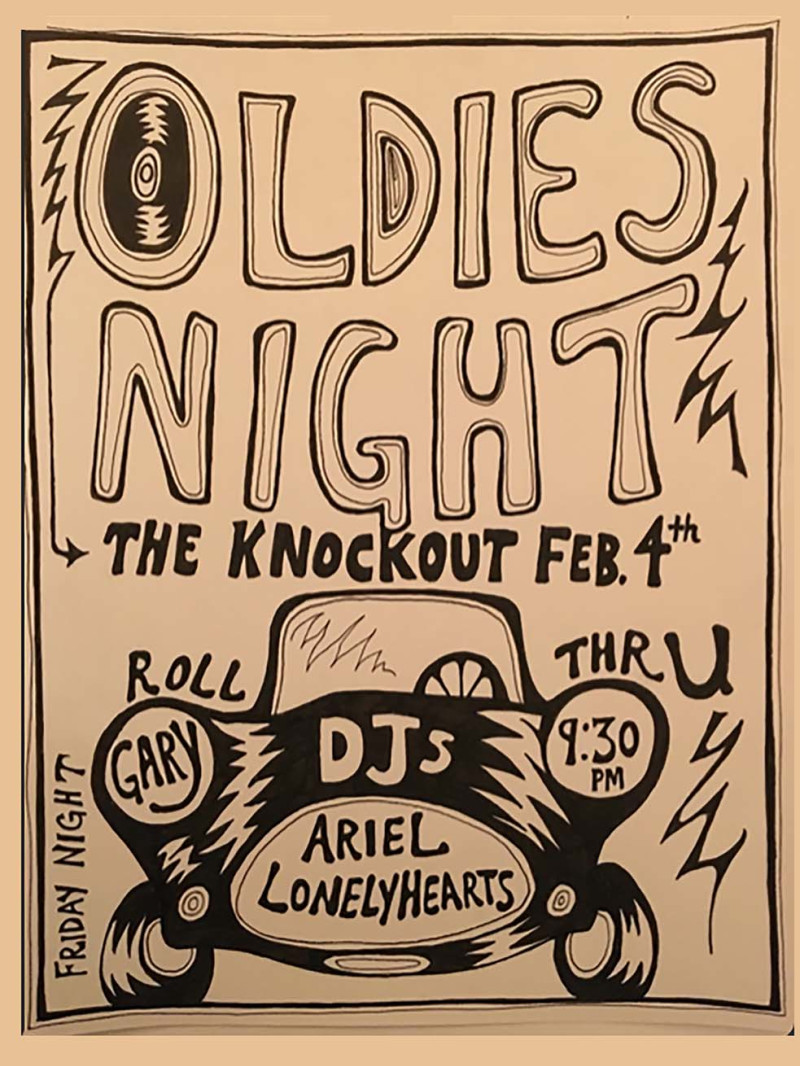 OLDIES
NIGHT
THE KNOCKOUT FEB. 4th
ROLL THRU
GARY
DJs
9:30
PM
ARIEL
LONELYHEARTS
FRIDAY NIGHT